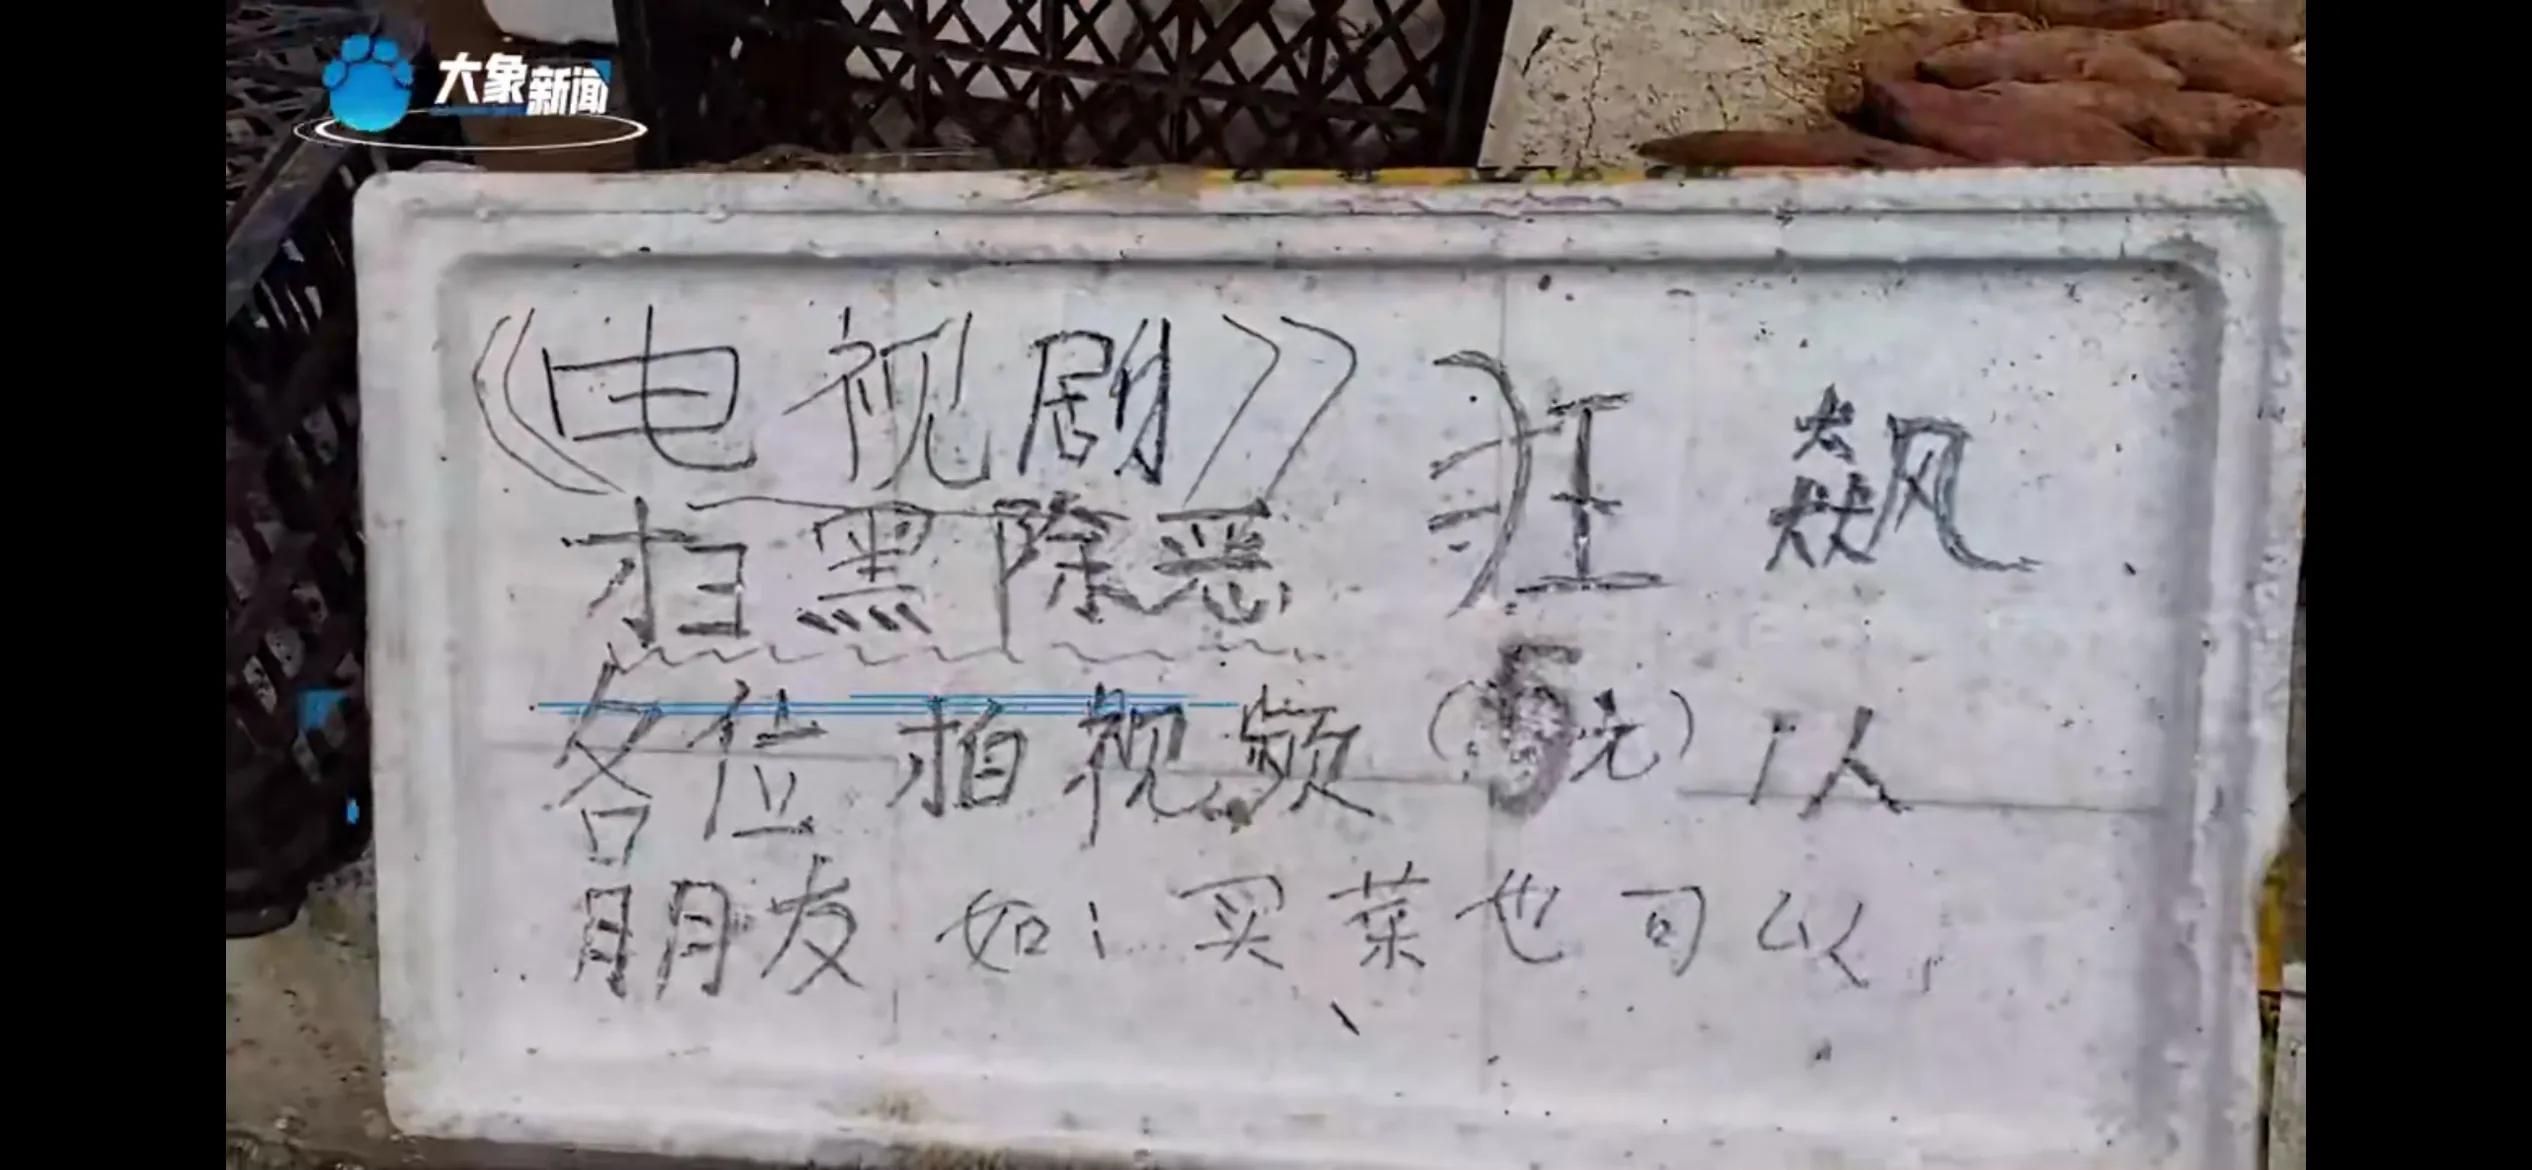 大象新闻
《电视剧》 狂飙
扫黑除恶
各位 拍视频(5元)1人
朋友 如: 买菜也可以,